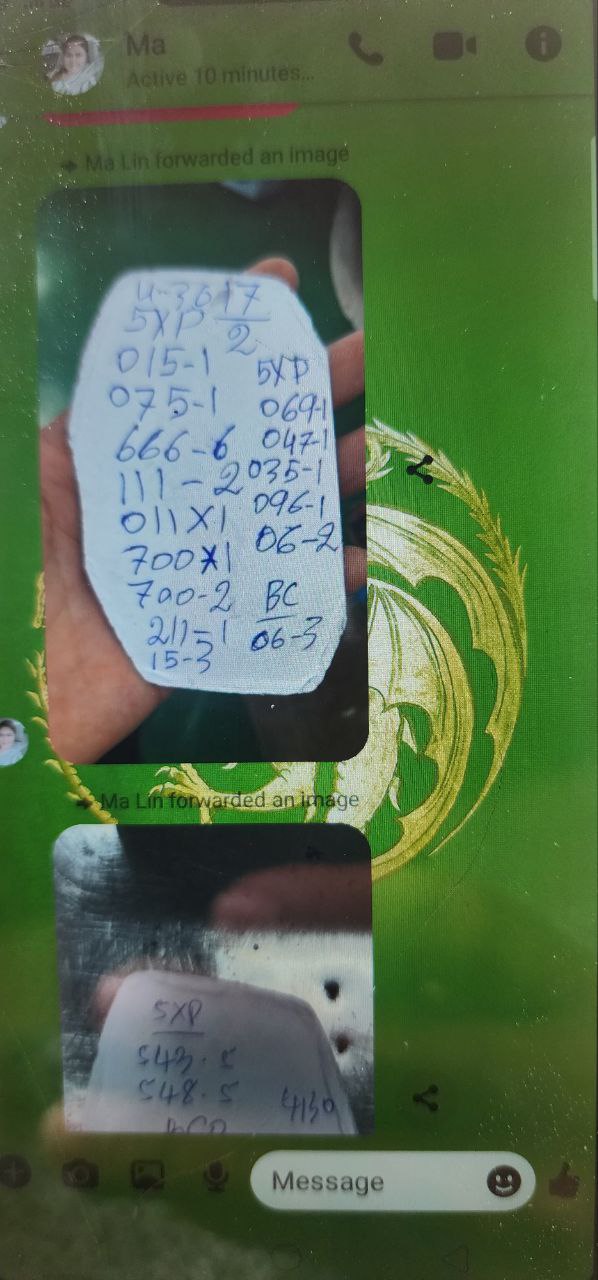 Ma
Active 10 minutes...
Ma Lin forwarded an image
4-30 17
5XP 2
015-1
075-1
666-6
111-2
011X1
700X1
700-2
211-1
15-3
5XP
069-1
047-1
035-1
096-1
06-2
BC
06-3
Ma Lin forwarded an image
5XP
543.5
548.5
4130
Message